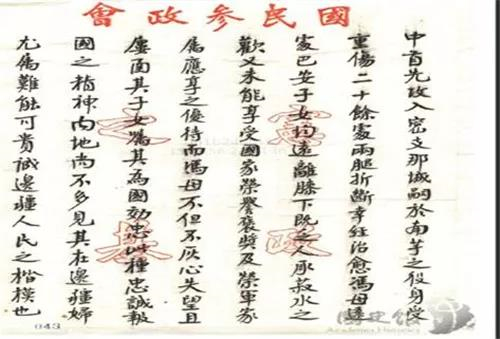 國民參政會
中首先攻入密支那城嗣於南芋之役身受
重傷二十餘處兩腿折斷幸經治愈馮母遠
處巴安子女均遠離膝下既乏人承菽水之
歡又未能享受國家榮譽褒獎及榮軍家
屬應享之優待而馮母不但不灰心失望且
屢函其子女勗其為國効忠此種忠誠報
國之精神內地尚不多見其在邊疆婦
尤為難能可貴誠邊疆人民之楷模也
043
國史館
Academia Historica